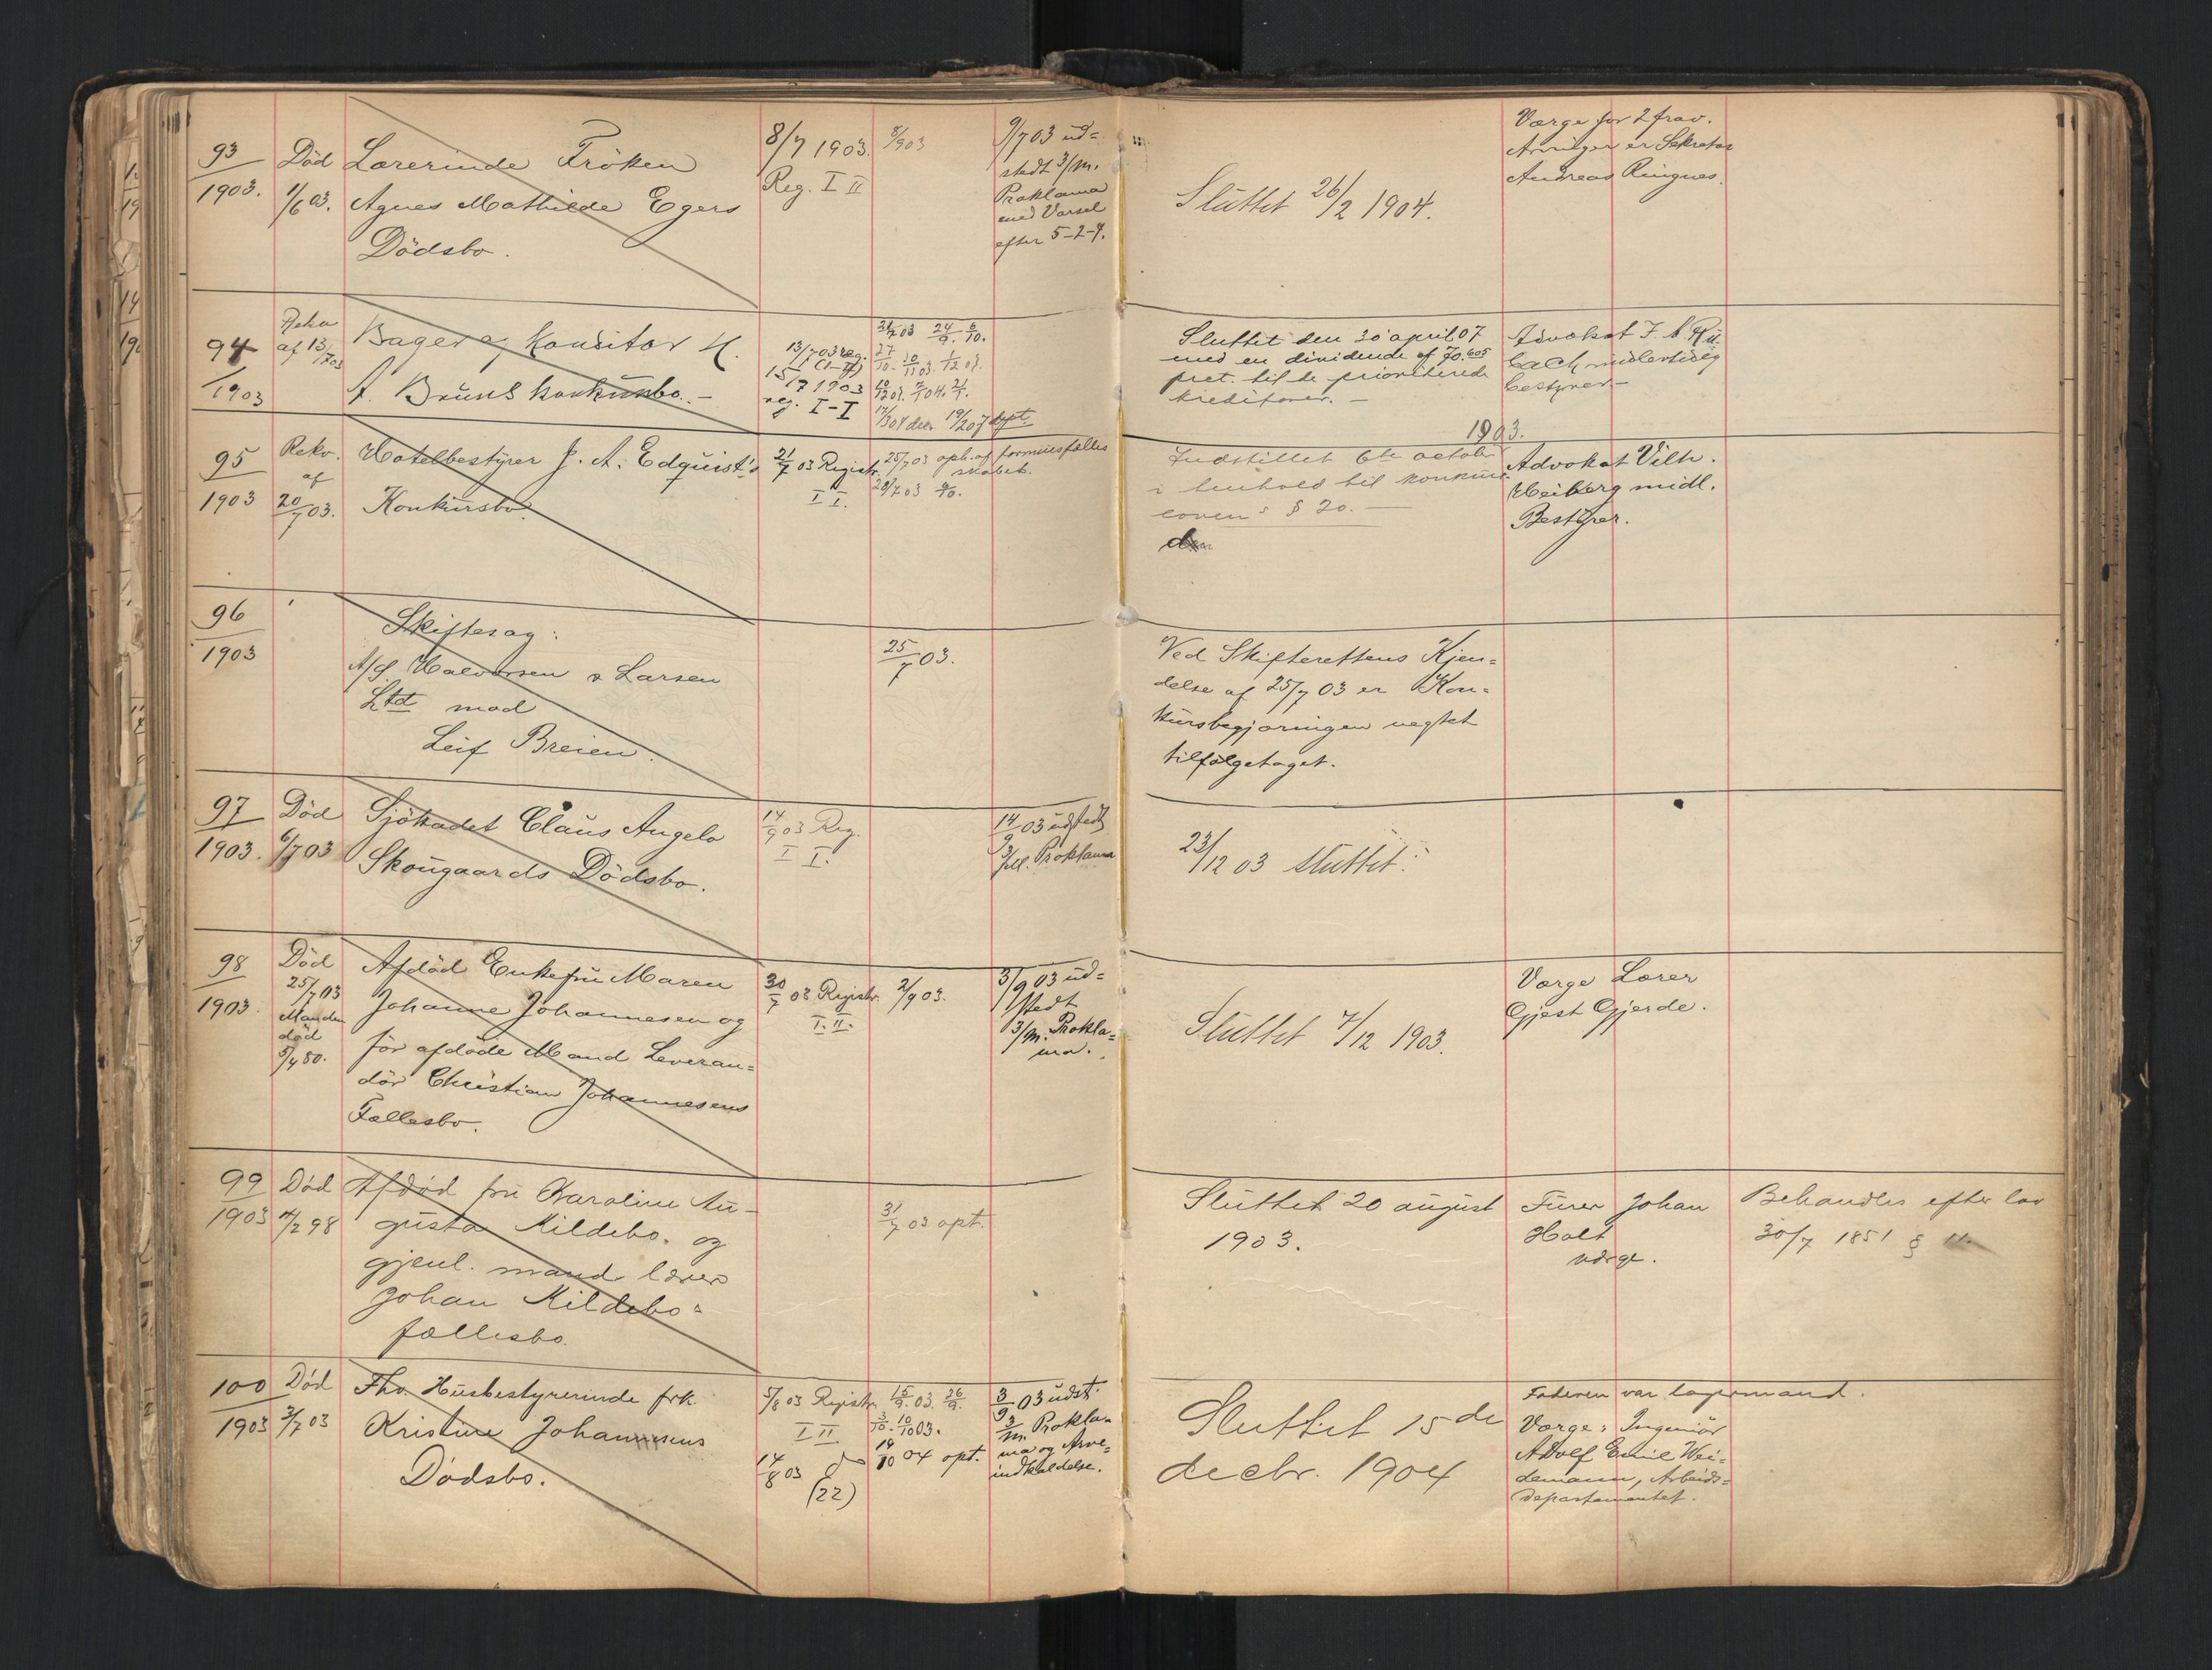 93
1903.
Död
1/6 03.
Lærerinde Fröken
Agnes Mathilde Egers
Dödsbo.
8/7 1903.
Reg. I II
9/7 03 ud=
stedt 3/m.
Proklama
med Varsel
efter 5-2-4.
Sluttet 26/2 1904.
Værge for 2 frav.
Arvinger er Sekretær
Andreas Ringnes.
94
1903
af 13/7 03
Bager og Konditor H.
A. Bruns konkursbo. -
13/7 03 reg.
15/7 1903
reg. I-I
Sluttet den 30 april 07
med en dividende af 70.605
pct. til de prioriterede
kreditorer. -
Advokat
midlertidig
bestyrer. -
95
1903
Rekv.
af
20/7 03.
Hotelbestyrer J. A. Edquist's
Konkursbo.
21/7 03 Registr.
I I.
25/7 03 oph. af formuesfælles
skabet.
28/7 03 6/10.
1903.
Indstillet 6te october
i henhold til konkurs
lovens § 20. -
Advokat Vilh.
Heiberg midl.
Bestyrer.
96
1903
Skiftesag:
A/S. Halvorsen & Larsen
Ltd mod
Leif Breien.
25/7 03.
Ved Skifterettens Kjen=
delse af 25/7 03 er Kon=
kursbegjæringen negtet
tilfölgetaget.
97
1903.
Död
6/7 03
Sjökadet Claus Angelo
Skougaards Dödsbo.
14/9 03 Reg.
I I.
14/9 03 udstedt
Proklama
23/12 03 sluttet.
98
1903.
Död
25/7 03
Manden
död
5/4 80.
Afdöd Enkefru Maren
Johanne Johannesen og
för afdöde Mand Leveran=
dör Christian Johannesens
Fællesbo.
30/7 03 Registr.
I. II.
2/9 03.
3/9 03 ud=
stedt
3/m. Prokla=
ma.
Sluttet 7/12 1903.
Værge Lærer
Gjest Gjerde.
99
1903
Död
98
Afdöd fru Karoline Au-
gusta Kildebo. og
gjenl. mand lærer
Johan Kildebo=
fællesbo.
31/7 03 opt.
Sluttet 20 august
1903.
Furer Johan
Holt
værge.
Behandles efter lov
30/7 1851 § 11.
100
1903
Död
3/7 03
Fhv. Husbestyrerinde frk.
Kristine Johannesens
Dødsbo.
5/8 03 Registr.
I II
14/8 03
(22)
15/9. 03. 26/9.
3/10. 10/10 03.
19/10 04 opt.
3/9 03 udst.
3/m. Prokla=
ma og Arve=
indkaldelse.
Sluttet 15de
decbr. 1904
Faderen var lagermand.
Værge: Ingeniör
Adolf Emil Wei=
demann, Arbeids=
departementet.